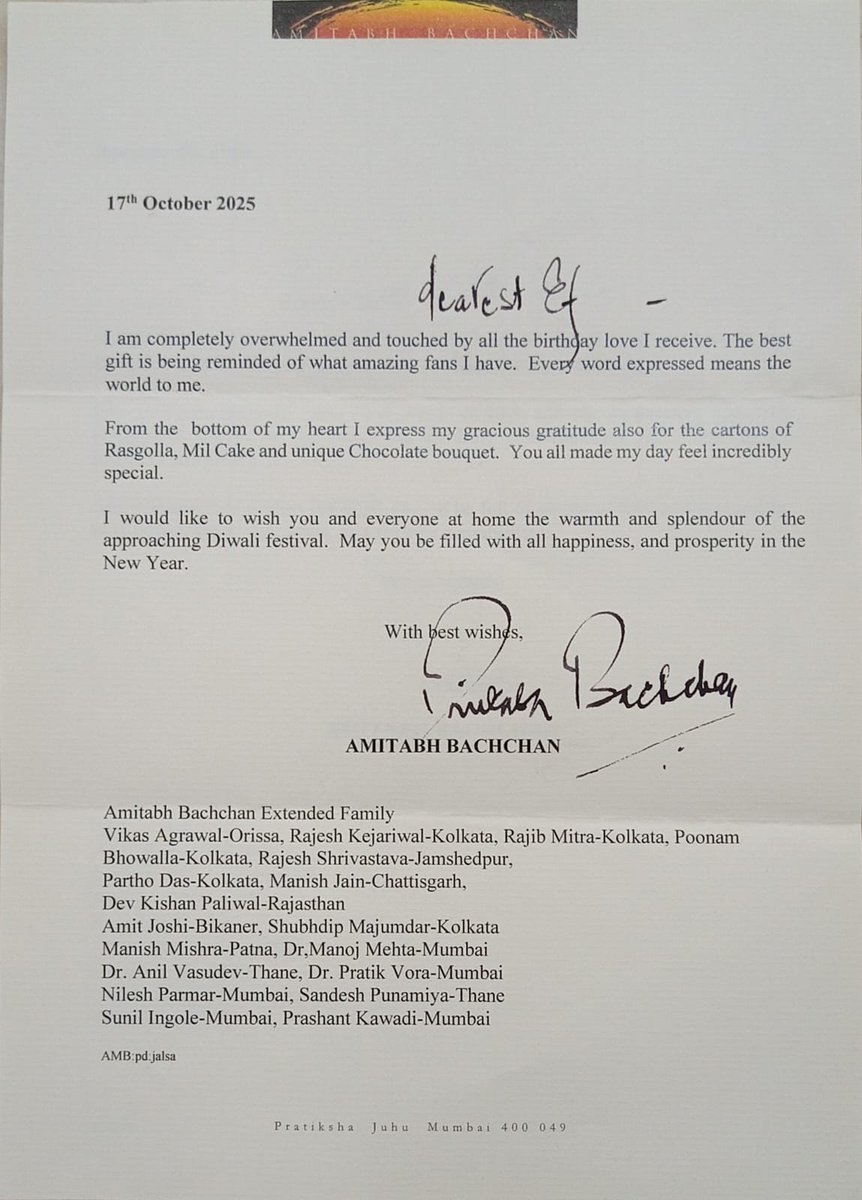 AMITABH BACHCHAN
17th October 2025
dearest Ef -
I am completely overwhelmed and touched by all the birthday love I receive. The best
gift is being reminded of what amazing fans I have. Every word expressed means the
world to me.
From the bottom of my heart I express my gracious gratitude also for the cartons of
Rasgolla, Mil Cake and unique Chocolate bouquet. You all made my day feel incredibly
special.
I would like to wish you and everyone at home the warmth and splendour of the
approaching Diwali festival. May you be filled with all happiness, and prosperity in the
New Year.
With best wishes,
Amitabh Bachchan
AMITABH BACHCHAN
Amitabh Bachchan Extended Family
Vikas Agrawal-Orissa, Rajesh Kejariwal-Kolkata, Rajib Mitra-Kolkata, Poonam
Bhowalla-Kolkata, Rajesh Shrivastava-Jamshedpur,
Partho Das-Kolkata, Manish Jain-Chattisgarh,
Dev Kishan Paliwal-Rajasthan
Amit Joshi-Bikaner, Shubhdip Majumdar-Kolkata
Manish Mishra-Patna, Dr,Manoj Mehta-Mumbai
Dr. Anil Vasudev-Thane, Dr. Pratik Vora-Mumbai
Nilesh Parmar-Mumbai, Sandesh Punamiya-Thane
Sunil Ingole-Mumbai, Prashant Kawadi-Mumbai
AMB:pd:jalsa
Pratiksha Juhu Mumbai 400 049